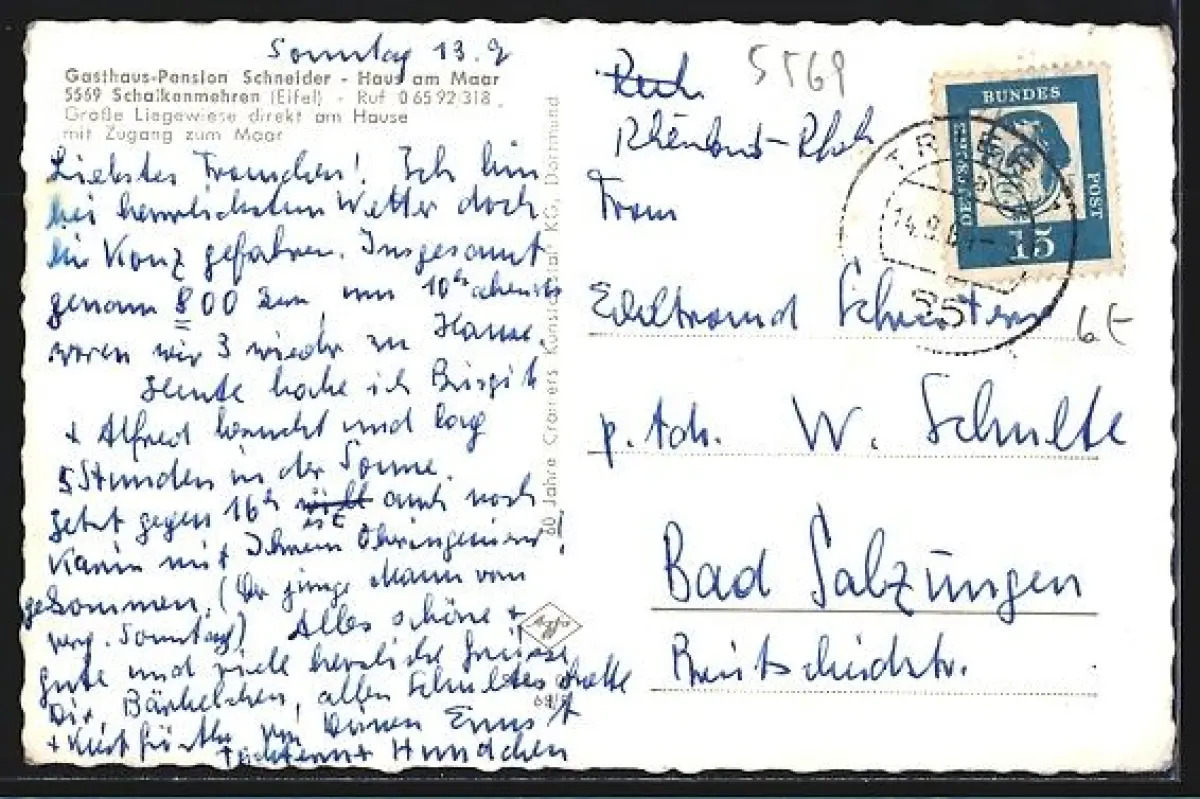 Sonntag 13.9
Gasthaus-Pension Schneider - Haus am Maar
5569 Schalkenmehren (Eifel) - Ruf 0 65 92/318
Große Liegewiese direkt am Hause
mit Zugang zum Maar
Liebstes Frauchen! Ich bin
bei herrlichstem Wetter doch
bis Konz gefahren. Insgesamt
genau 800 km um 10h abends
waren wir 3 wieder zu Hause.
Heute habe ich Birgit
+ Alfred besucht und lag
5 Stunden in der Sonne.
Jetzt gegen 16h ist auch noch
Karin mit Ihrem Obringenieur
gekommen. (Der junge Mann vom
verg. Sonntag) Alles schöne +
gute und viele herzliche Grüsse
Dir, Bärbelchen, allen Schultes
+ von Deinen Ernst
Töchtern + Hündchen
60 Jahre Cramers Kunstanstalt KG, Dortmund
5569
Rheinland-Pfalz
Frau
Edeltraud Schusters
p. Adr. W. Schulte
Bad Salzungen
Breitscheidstr.
DEUTSCHE
BUNDES
POST
15
TRIER
14.9.6
55
6E